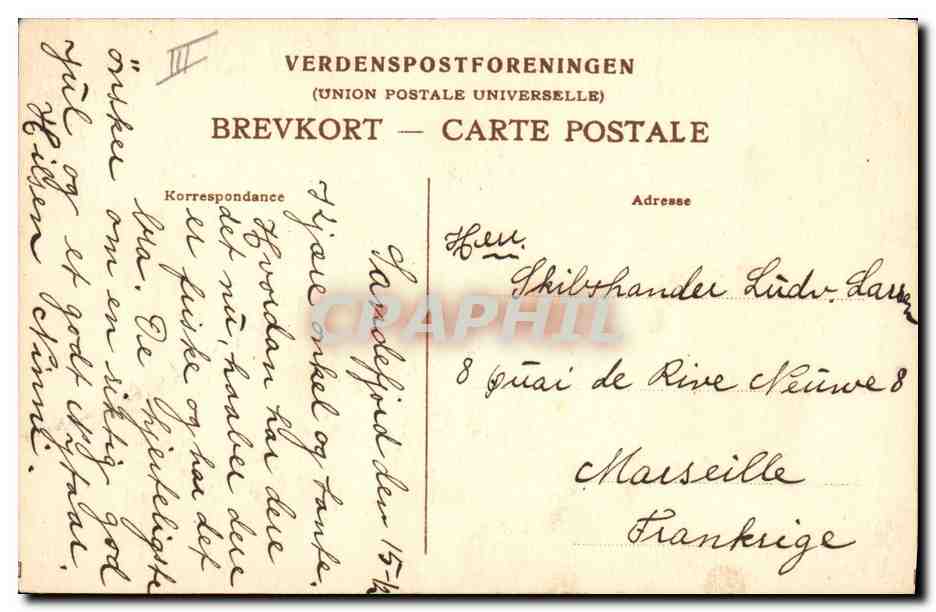 III
VERDENSPOSTFORENINGEN
(UNION POSTALE UNIVERSELLE)
BREVKORT — CARTE POSTALE
Korrespondance
Adresse
Sandefjord den 15-12
Kjære onkel og tante.
Hvordan har dere
det nu, haaber dere
er friske og har det
bra. De hjerteligste
önsker om en riktig god
jul og et godt Nytaar.
Hilsen Nünni.
Herr.
Skibshandler Lüdv. Larsen
8 Quai de Rive Neuwe 8
Marseille
Frankrige
CPAPHIL